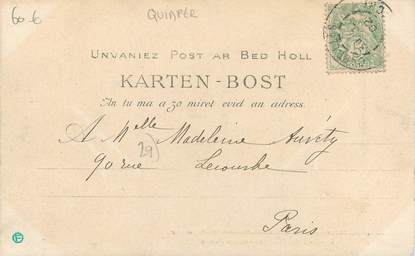 60 €
QUIMPER
UNVANIEZ POST AR BED HOLL
KARTEN-BOST
An tu ma a zo miret evid an adress.
A Melle Madeleine
(29)
90 rue Lecourbe
Paris